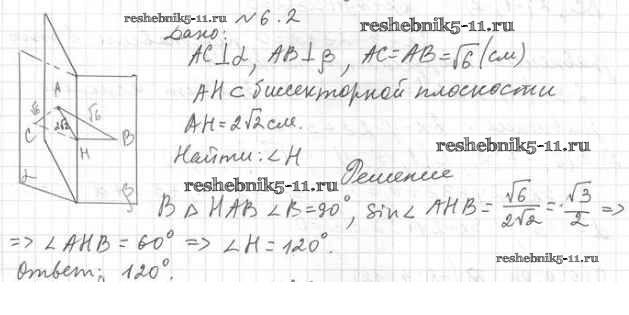 reshebnik5-11.ru №6.2 reshebnik5-11.ru
Дано:
AC⊥α, AB⊥β, AC=AB=√6(см)
AH⊂биссекторной плоскости
AH=2√2см.
Найти: ∠H
reshebnik5-11.ru
Решение
reshebnik5-11.ru
A
√6
√6
2√2
C
B
H
α
β
В △ HAB ∠B=90°, sin∠ AHB = √6/2√2 = √3/2 =>
=> ∠AHB = 60° => ∠H = 120°.
Ответ: 120°.
reshebnik5-11.ru